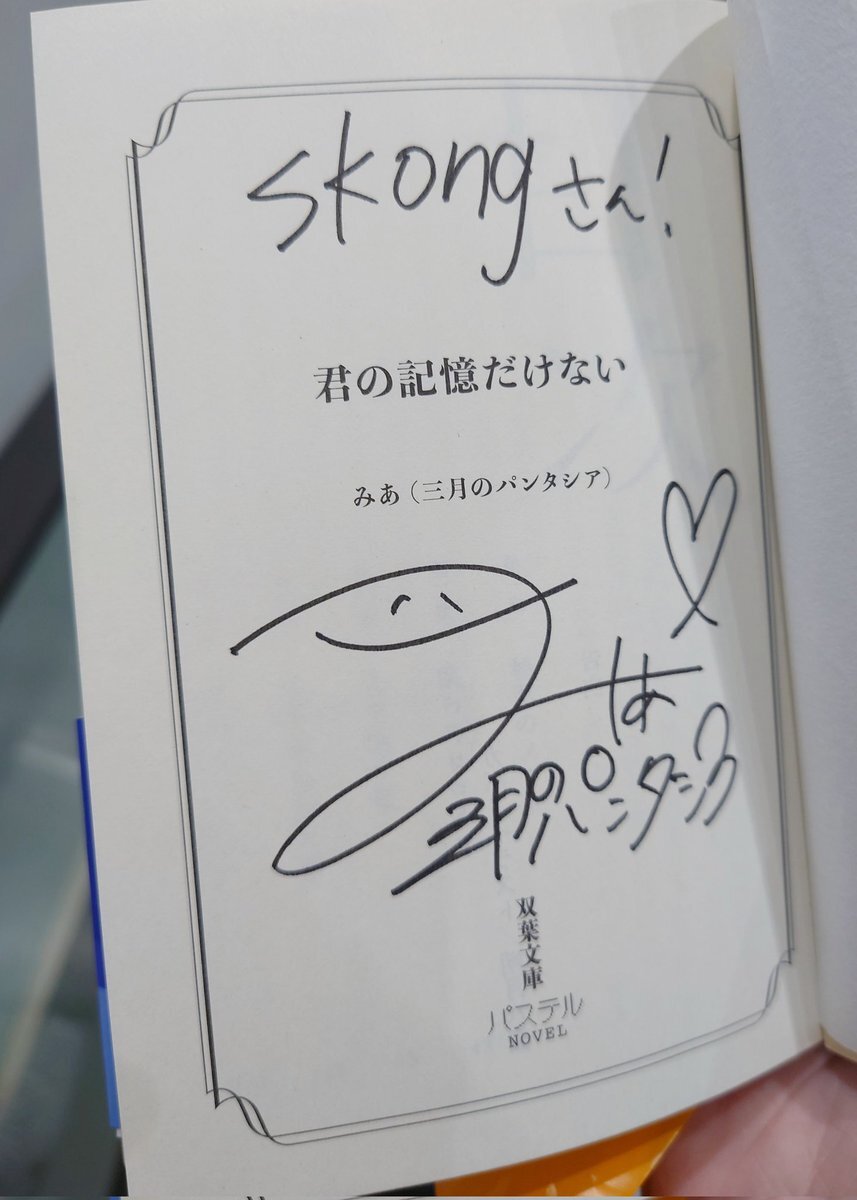 skongさん!
君の記憶だけない
みあ（三月のパンタシア）
みあ
三月のパンタシア
双葉文庫
パステル
NOVEL